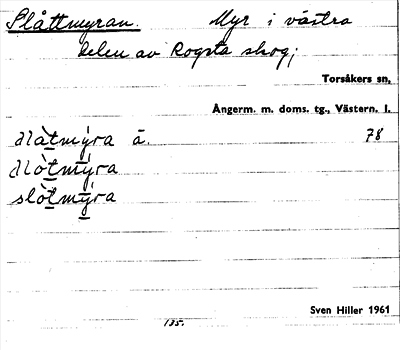 Slåttmyran. Myr i västra
delen av Rogsta skog;
Torsåkers sn,
Ångerm. m. doms. tg., Västern. l.
myra ä. 78
myra
slòtmýra
135.
Sven Hiller 1961